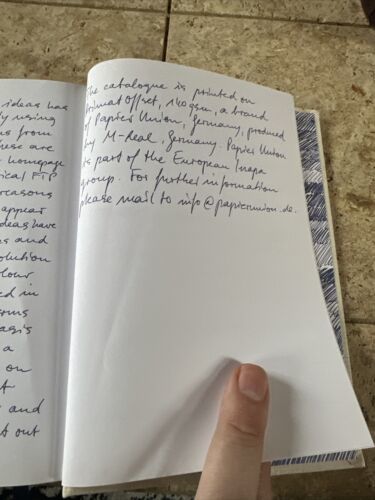 ideas has
by using
from
these are
homepage
FTP
reasons
appear
ideas have
and
solution
colour
ed in
a
on
and
t out
The catalogue is printed on
Primat Offset, 140 gsm, a brand
of Papier Union, Germany, produced
by M-Real, Germany. Papier Union
is part of the European Inapa
group. For further information
please mail to info@papierunion.de.